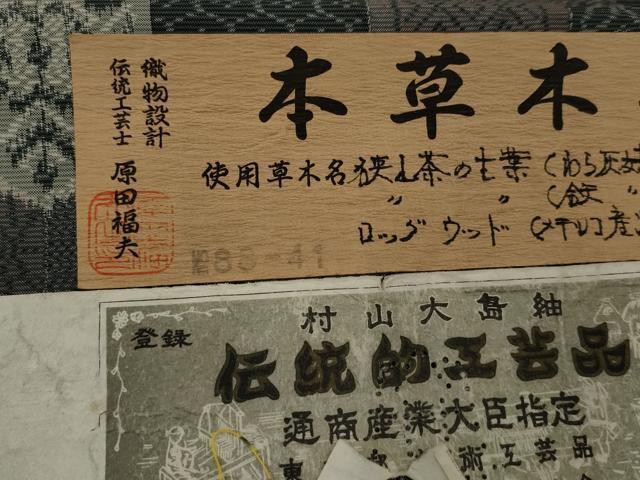 本草木
織物設計
伝統工芸士 原田福夫
使用草木名 狭山茶の生葉(わら灰
〃 〃 (鉄 〃
ロッグウッド(メキシコ産
83-41
村山大島紬
登録
伝統的工芸品
通商産業大臣指定
東 術工芸品